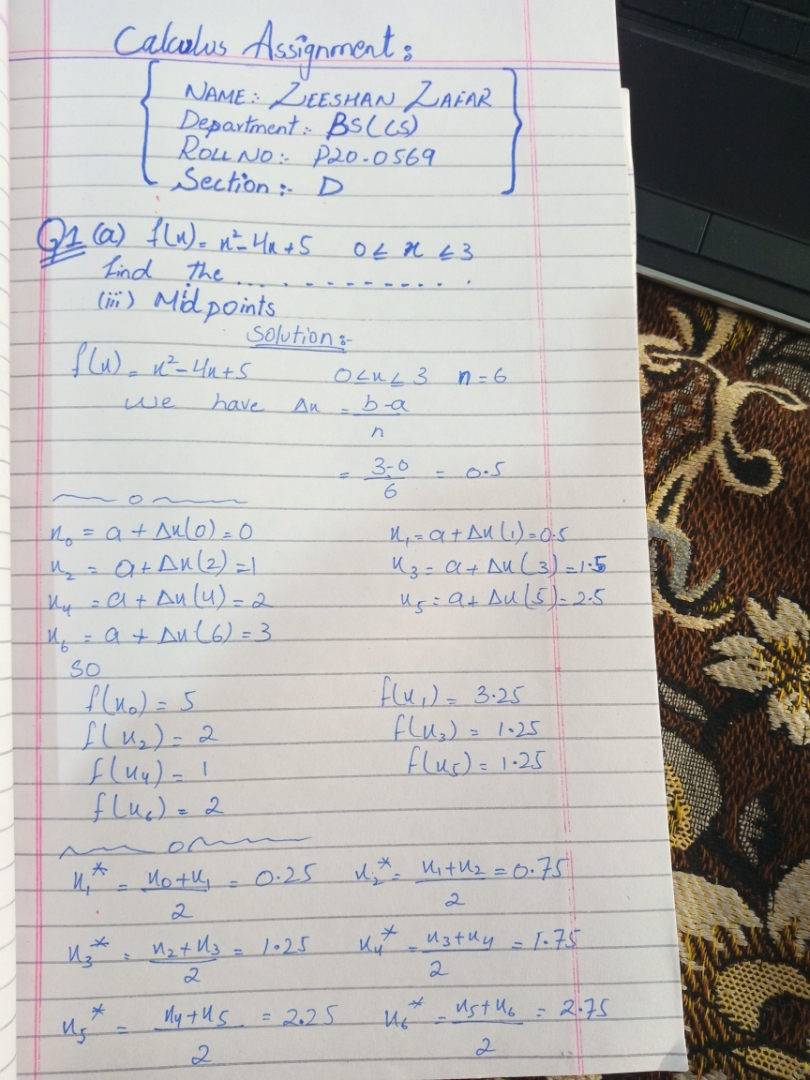 Calculus Assignment:
NAME:- ZEESHAN ZAFAR
Department:- BS(CS)
ROLL NO:- P20-0569
Section:- D
Q1 (a) f(x) = x²-4x+5 0≤ x ≤3
find the ... - - - - - - - . . .
(iii) Midpoints
Solution:-
f(x) = x²-4x+5 0≤x≤3 n=6
we have Δx = b-a/n
= 3-0/6 = 0.5
x₀ = a + Δx(0) = 0 x₁ = a + Δx(1) = 0.5
x₂ = a + Δx(2) = 1 x₃ = a + Δx(3) = 1.5
x₄ = a + Δx(4) = 2 x₅ = a + Δx(5) = 2.5
x₆ = a + Δx(6) = 3
SO
f(x₀) = 5 f(x₁) = 3.25
f(x₂) = 2 f(x₃) = 1.25
f(x₄) = 1 f(x₅) = 1.25
f(x₆) = 2
x₁* = x₀+x₁/2 = 0.25 x₂* = x₁+x₂/2 = 0.75
x₃* = x₂+x₃/2 = 1.25 x₄* = x₃+x₄/2 = 1.75
x₅* = x₄+x₅/2 = 2.25 x₆* = x₅+x₆/2 = 2.75